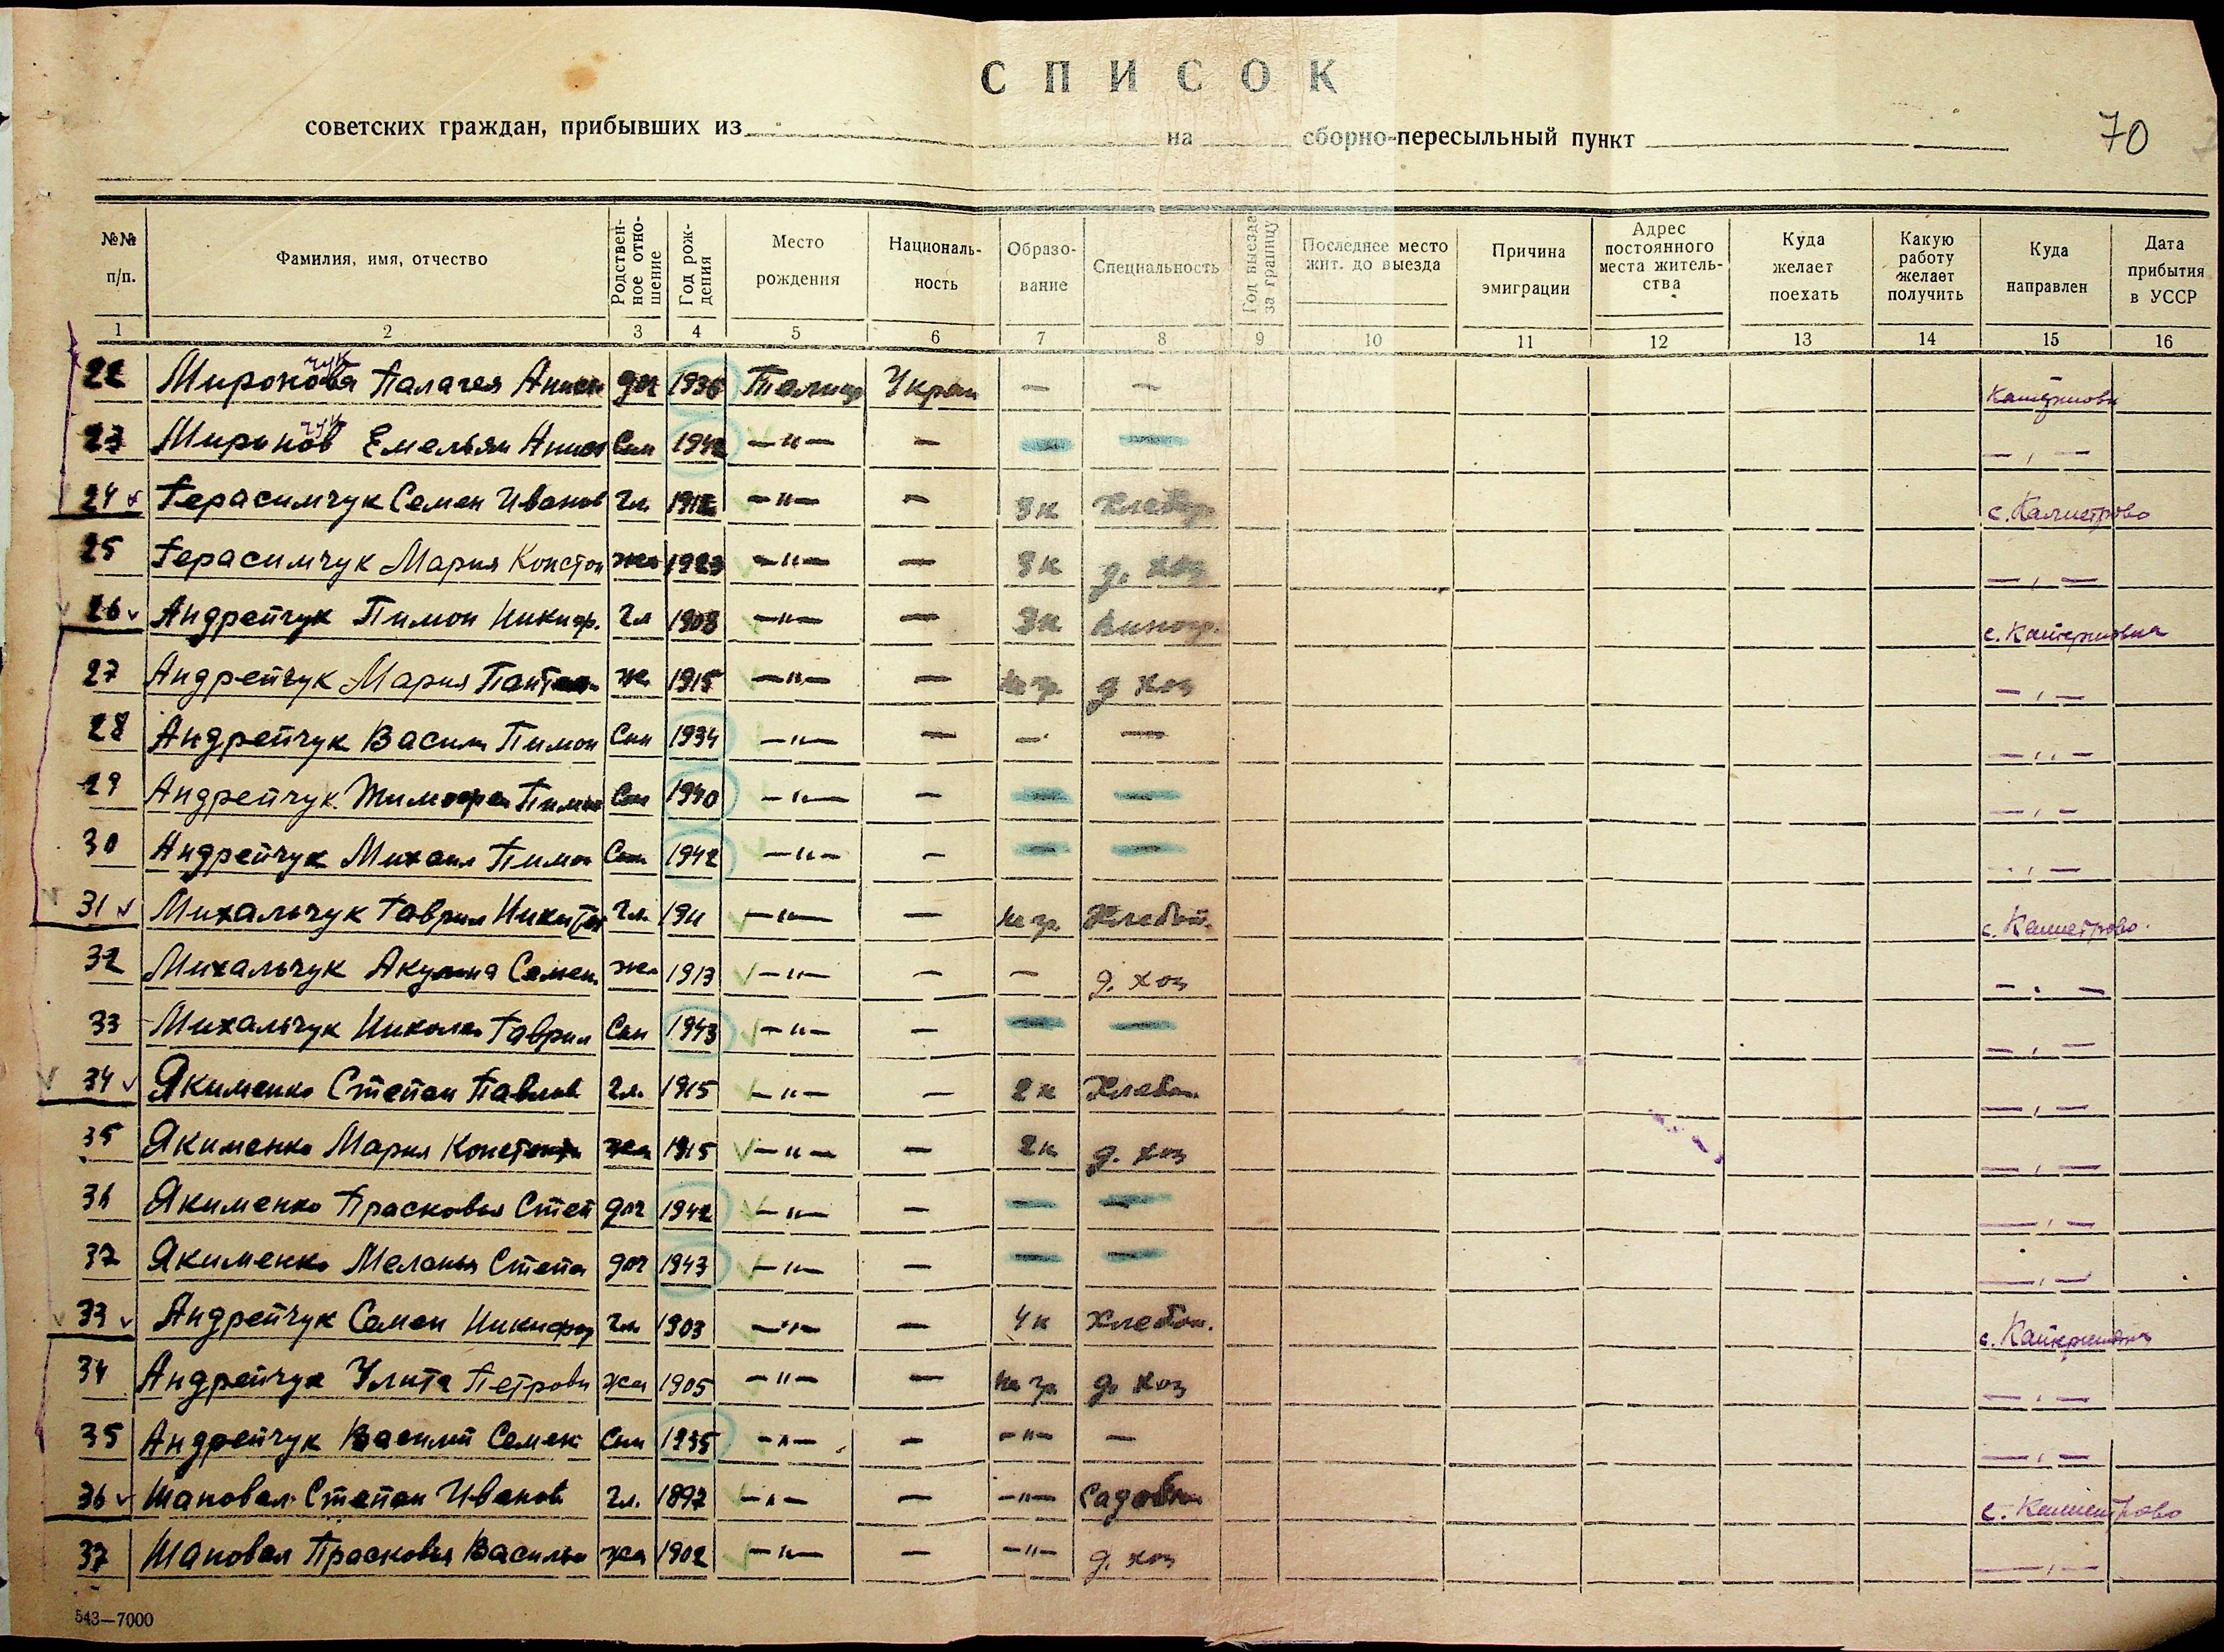 СПИСОК
советских граждан, прибывших из на сборно-пересыльный пункт
70
№№ п/п. Фамилия, имя, отчество Родствен-ное отно-шение Год рож-дения Место рождения Националь-ность Образо-вание Специальность Год выезда за границу Последнее место жит. до выезда Причина эмиграции Адрес постоянного места житель-ства Куда желает поехать Какую работу желает получить Куда направлен Дата прибытия в УССР
1 2 3 4 5 6 7 8 9 10 11 12 13 14 15 16
22 Миронова чук Палагея доч 1936 Украи — —
23 Миронов чук Емельян Сын 1942 —"— — — — — , —
24 Герасимчук Семен Иванов Гл. 1912 —"— — 3к Хлебор.
25 Герасимчук Мария Констан жа 1923 —"— — 3к д. хоз — , —
26 Андрейчук Пимон Никиф. Гл 1908 —"— — 3к
27 Андрейчук Мария ж 1915 —"— — не гр. д хоз — , —
28 Андрейчук Васили Пимон Сын 1934 —"— — — — — „ —
29 Андрейчук Тимофей Пимон Сын 1940 —"— — — — — , —
30 Андрейчук Михаил Пимон Сын 1942 —"— — — — — , —
31 Михальчук Гаврил Никитов Гл. 1911 —"— — не гр.
32 Михальчук Акулина Семен. жа 1913 —"— — — д. хоз — . —
33 Михальчук Николай Гаврил Сын 1943 —"— — — — — , —
34 Якименко Степан Павлов Гл. 1915 —"— — 2к Хлебоп. — , —
35 Якименко Мария Констант жа 1915 —"— — 2к д. хоз — , —
36 Якименко Прасковья Степ доч 1942 —"— — — — — , —
37 Якименко Меланья Степа доч 1943 —"— — — — — , —
33 Андрейчук Семен Никифор Гл. 1903 —"— — 4к Хлебоп.
34 Андрейчук Улита Петровн жа 1905 —"— — не гр д. хоз — , —
35 Андрейчук Василий Семен Сын 1935 —"— — —"— — — , —
36 Шаповал Степан Иванов Гл. 1897 —"— — —"—
37 Шаповал Прасковья Василь жа 1902 —"— — —"— д. хоз — , —
543—7000